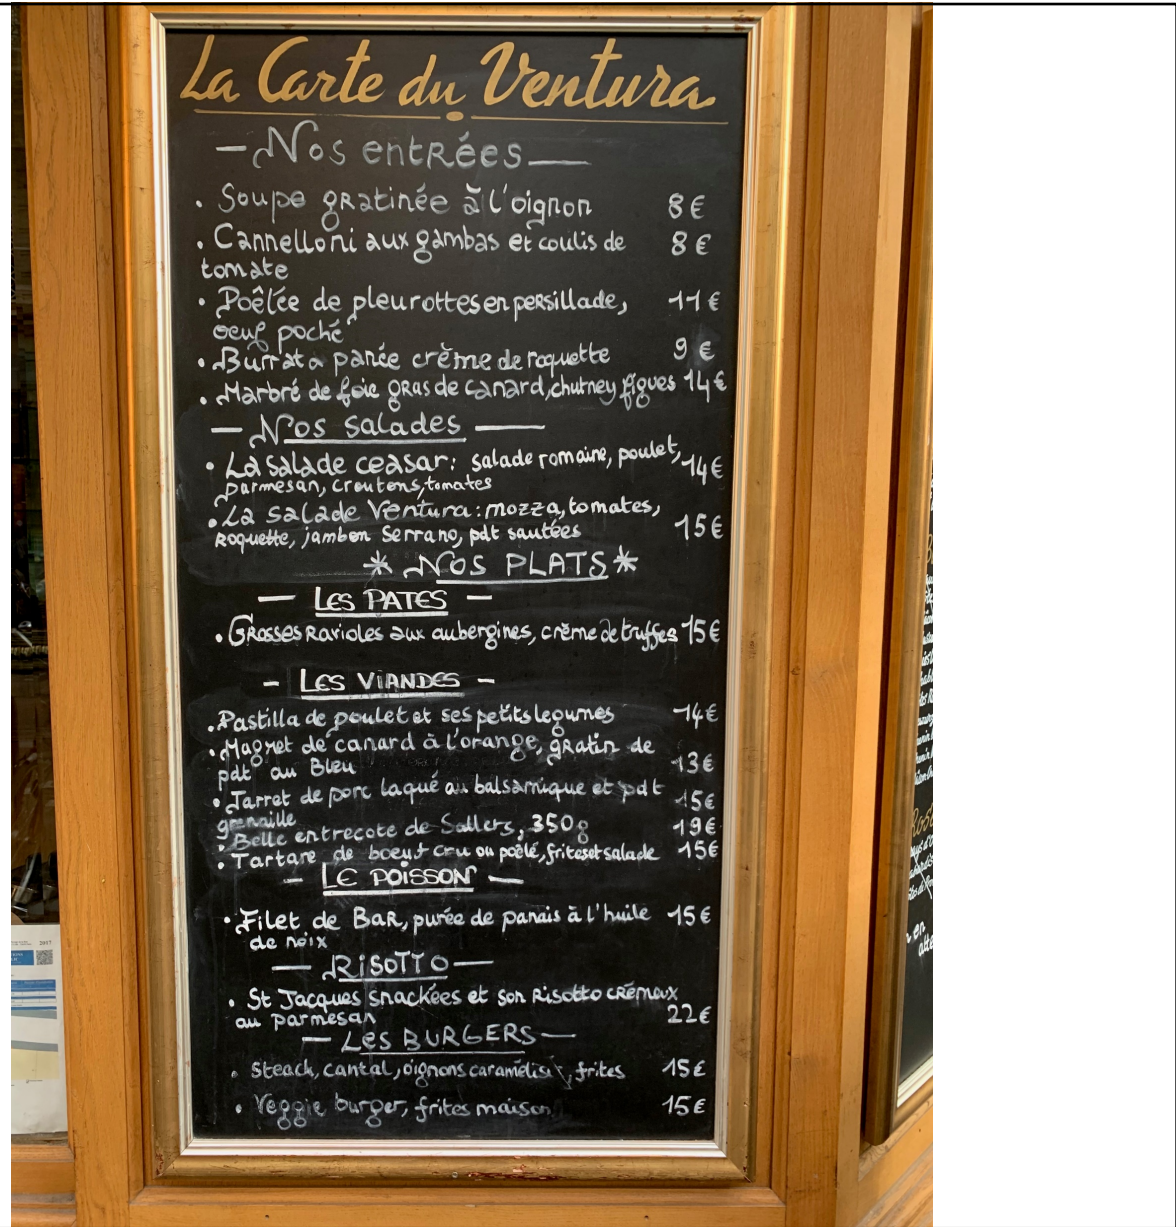 La Carte du Ventura
— Nos entrées —
• Soupe gratinée à l'oignon 8€
• Cannelloni aux gambas et coulis de 8€
tomate
• Poêlée de pleurottes en persillade, 11€
oeuf poché
• Burrata panée crème de roquette 9€
• Marbré de foie gras de canard, chutney figues 14€
— Nos salades —
• La salade ceasar: salade romaine, poulet, 14€
parmesan, croutons, tomates
• La salade Ventura: mozza, tomates,
Roquette, jambon Serrano, pdt sautées 15€
* Nos PLATS *
— Les PATES —
• Grosses Ravioles aux aubergines, crème de truffes 15€
— Les ViANDES —
• Pastilla de poulet et ses petits legumes 14€
• Magret de canard à l'orange, gratin de
pdt au Bleu 13€
• Jarret de porc laqué au balsamique et pdt 15€
grenaille
• Belle entrecote de Sallers, 350g 19€
• Tartare de boeuf cru ou poêlé, frites et salade 15€
— Le POISSON —
• Filet de Bar, purée de panais à l'huile 15€
de noix
— RISOTTO —
• St Jacques snackées et son Risotto crémeux
au parmesan 22€
— Les BURGERS —
• Steack, cantal, oignons caramélisés, frites 15€
• Veggie burger, frites maison 15€
2017